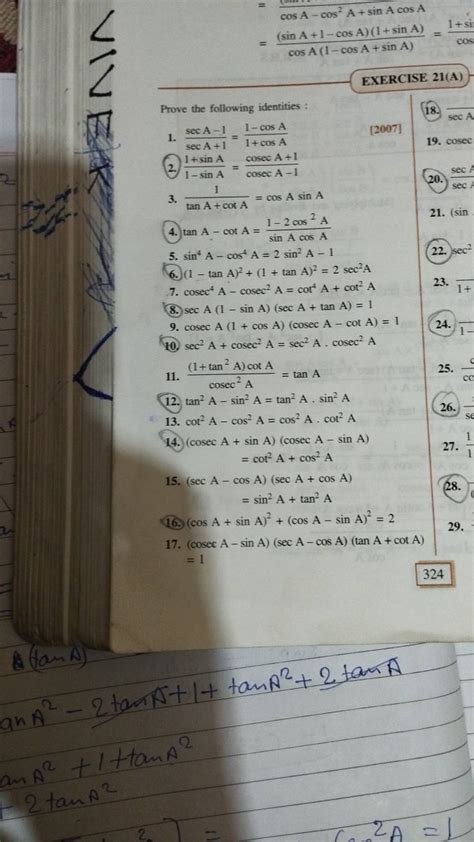 cos A – cos² A + sin A cos A
= (sin A + 1 – cos A) (1 + sin A) / cos A (1 – cos A + sin A) = 1 + si / cos
EXERCISE 21(A)
Prove the following identities :
1. sec A – 1 / sec A + 1 = 1 – cos A / 1 + cos A [2007]
2. 1 + sin A / 1 – sin A = cosec A + 1 / cosec A – 1
3. 1 / tan A + cot A = cos A sin A
4. tan A – cot A = 1 – 2 cos² A / sin A cos A
5. sin⁴ A – cos⁴ A = 2 sin² A – 1
6. (1 – tan A)² + (1 + tan A)² = 2 sec²A
7. cosec⁴ A – cosec² A = cot⁴ A + cot² A
8. sec A (1 – sin A) (sec A + tan A) = 1
9. cosec A (1 + cos A) (cosec A – cot A) = 1
10. sec² A + cosec² A = sec² A . cosec² A
11. (1 + tan² A) cot A / cosec² A = tan A
12. tan² A – sin² A = tan² A . sin² A
13. cot² A – cos² A = cos² A . cot² A
14. (cosec A + sin A) (cosec A – sin A)
= cot² A + cos² A
15. (sec A – cos A) (sec A + cos A)
= sin² A + tan² A
16. (cos A + sin A)² + (cos A – sin A)² = 2
17. (cosec A – sin A) (sec A – cos A) (tan A + cot A)
= 1
18.
sec A
19. cosec
20. sec A / sec A
21. (sin
22. sec²
23.
1 +
24.
1 –
25.
co
26.
se
27. 1 / 1
28.
29.
324
VIVEK
(tan A)
an A² – 2tan A + 1 + tan A² + 2 tan A
an A² + 1 + tan A²
+ 2 tan A
² A = 1